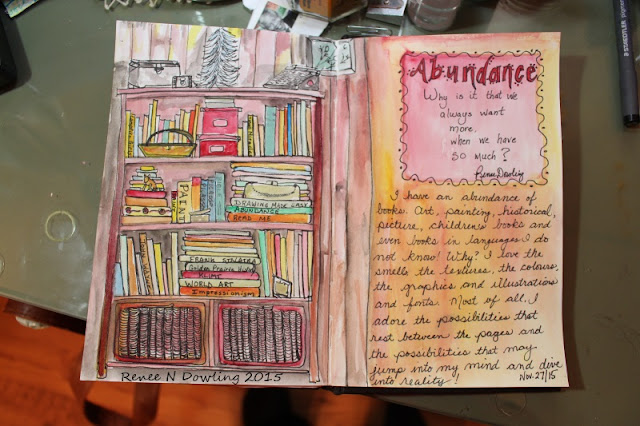 DRAWING MADE EASY
ABUNDANCE
READ ME
FRANK STELLA
WORLD ART
Impressionism
Renee N Dowling 2015
Abundance
Why is it that we
always want
more.
when we have
so much?
Renee Dowling
I have an abundance of
books. Art, painting, historical,
picture, children's books and
even books in languages I do
not know! Why? I love the
smells the textures, the colours,
the graphics and illustrations
and fonts. Most of all, I
adore the possibilities that
rest between the pages and
the possibilities that may
jump into my mind and dive
into reality!
Nov. 27/15
STAEDTLER